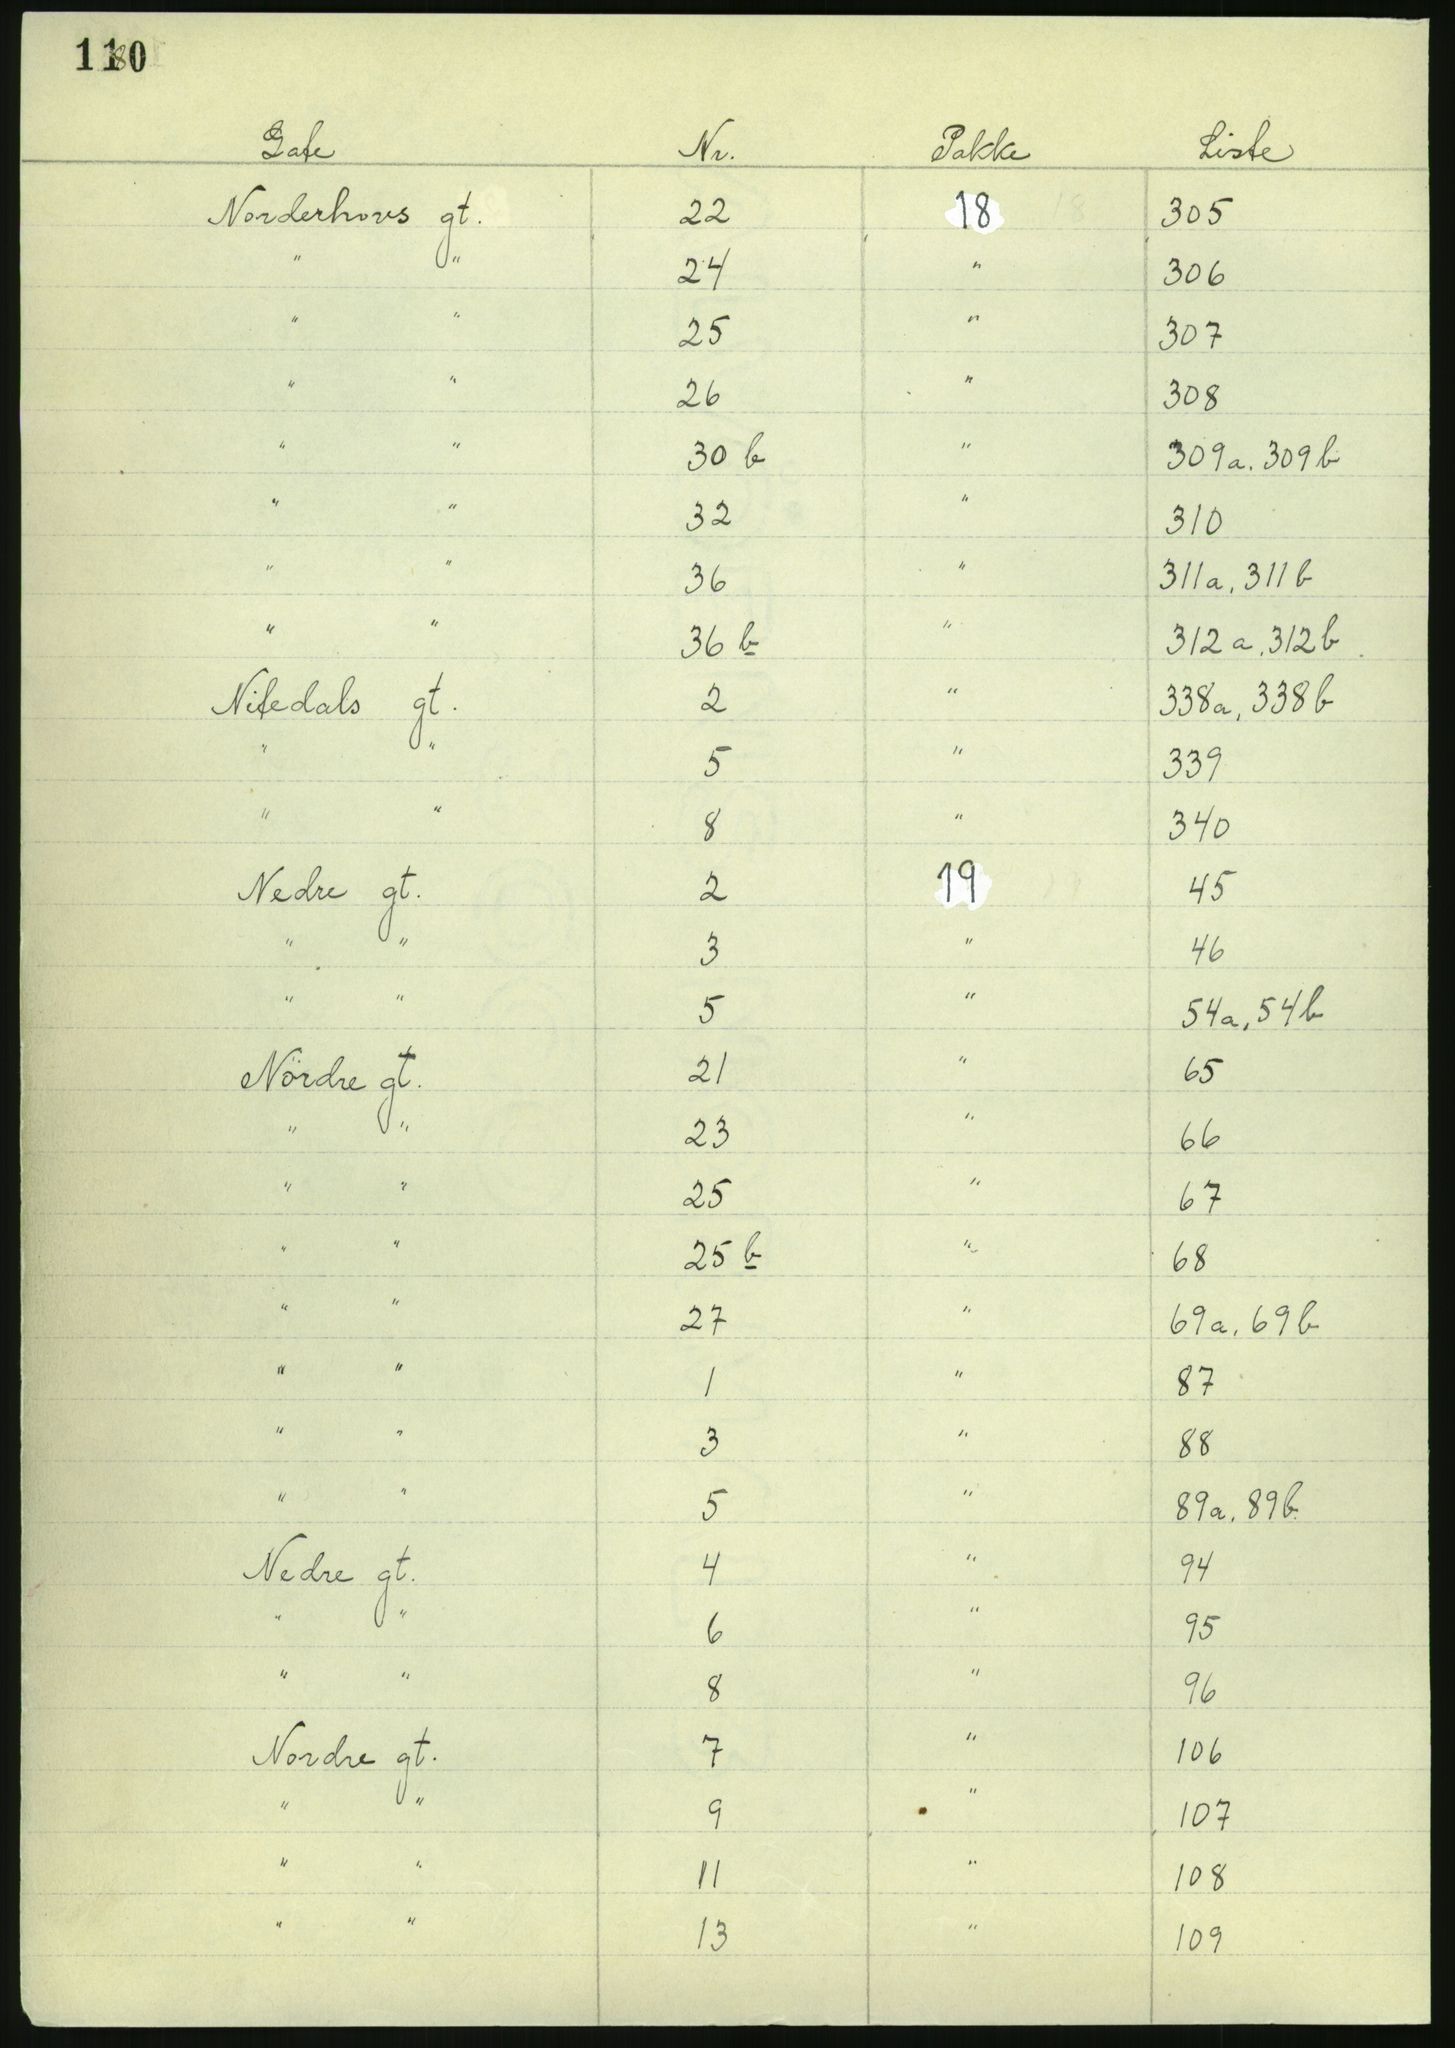 110
Gate Nr. Pakke Liste
Norderhovs gt. 22 18 305
" " 24 " 306
" " 25 " 307
" " 26 " 308
" " 30 b " 309a. 309b
" " 32 " 310
" " 36 " 311a, 311b
" " 36 b " 312a, 312b
Nitedals gt. 2 " 338a, 338b
" " 5 " 339
" " 8 " 340
Nedre gt. 2 19 45
" " 3 " 46
" " 5 " 54a, 54b
Nördre gt. 21 " 65
" " 23 " 66
" " 25 " 67
" " 25 b " 68
" " 27 " 69a, 69b
" " 1 " 87
" " 3 " 88
" " 5 " 89a, 89b
Nedre gt. 4 " 94
" " 6 " 95
" " 8 " 96
Nordre gt. 7 " 106
" " 9 " 107
" " 11 " 108
" " 13 " 109